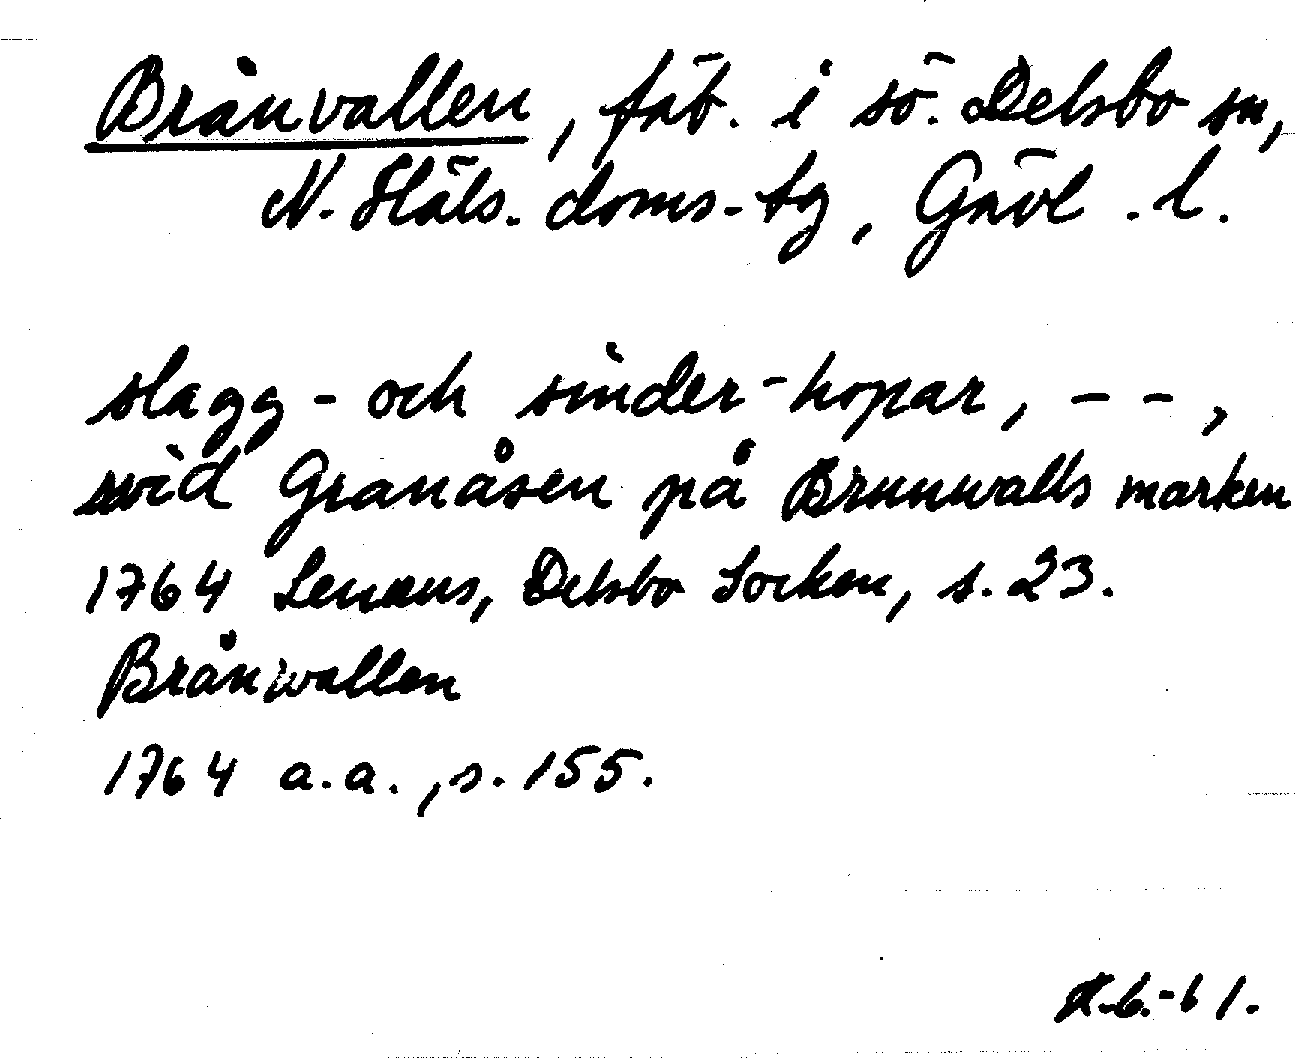 Brånvallen, fäb. i sö. Delsbo sn,
N. Häls. doms-tg, Gävl. l.
slagg- och sinder-hopar, - - ,
wid Granåsen på Brunwalls marken
1764 Lenæus, Delsbo Socken, s. 23.
Brånwallen
1764 a.a., s. 155.